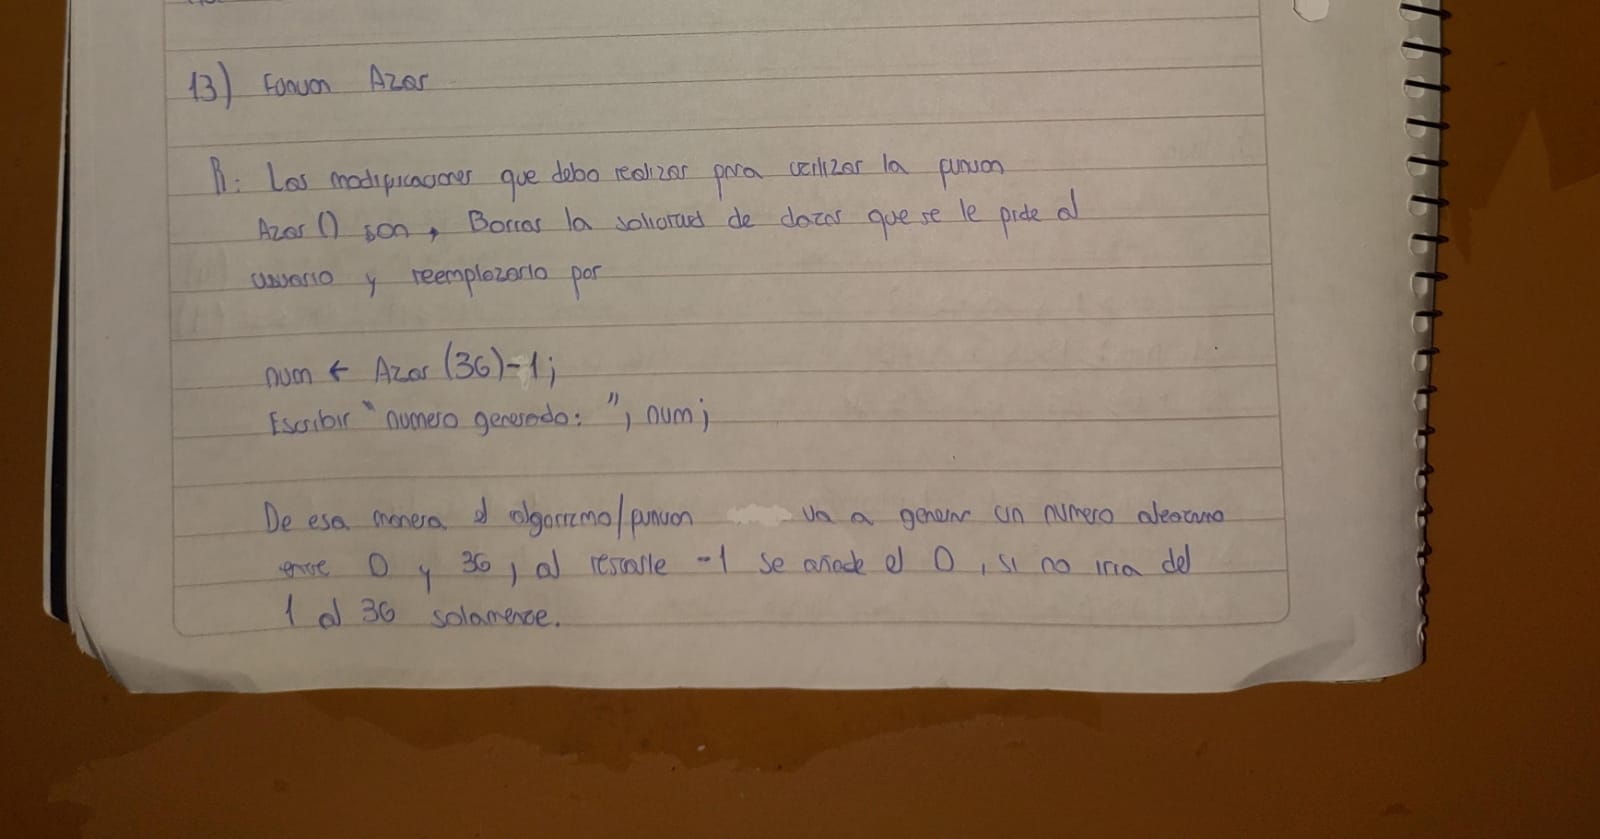 13) Funcion Azar
R: Las modificaciones que debo realizar para utilizar la funcion
Azar () son, Borrar la solicitud de datos que se le pide al
usuario y reemplazarlo por
num ← Azar (36)-1;
Escribir "numero generado: ", num;
De esa manera el algoritmo/funcion va a generar un numero aleatorio
entre 0 y 36, al restarle -1 se añade el 0, si no iria del
1 al 36 solamente.